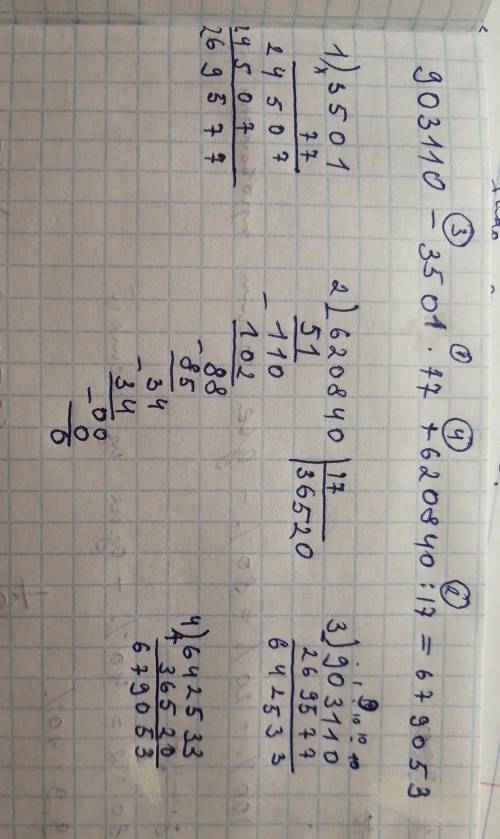 ③ ① ④ ②
903110 - 3501 · 77 + 620840 : 17 = 679053
1) 3501
×
77
24507
24507
269577
2) 620840 | 17
51 | 36520
- 110
102
- 88
85
- 34
34
- 00
0
0
3) 903110
269577
642533
4) 642533
+
36520
679053